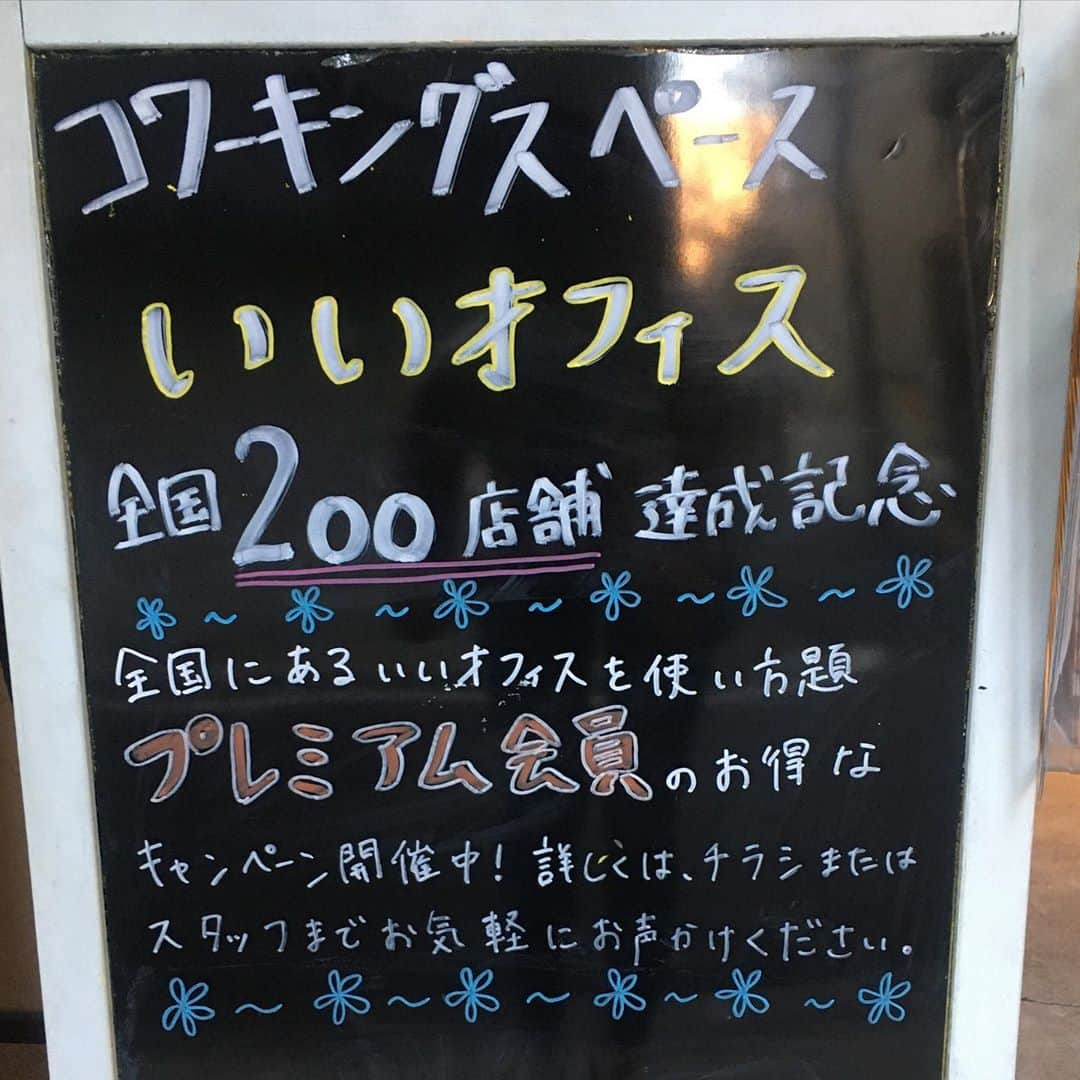 コワーキングスペース
いいオフィス
全国200店舗達成記念
全国にあるいいオフィスを使い方題
プレミアム会員のお得な
キャンペーン開催中！詳しくは、チラシまたは
スタッフまでお気軽にお声かけください。